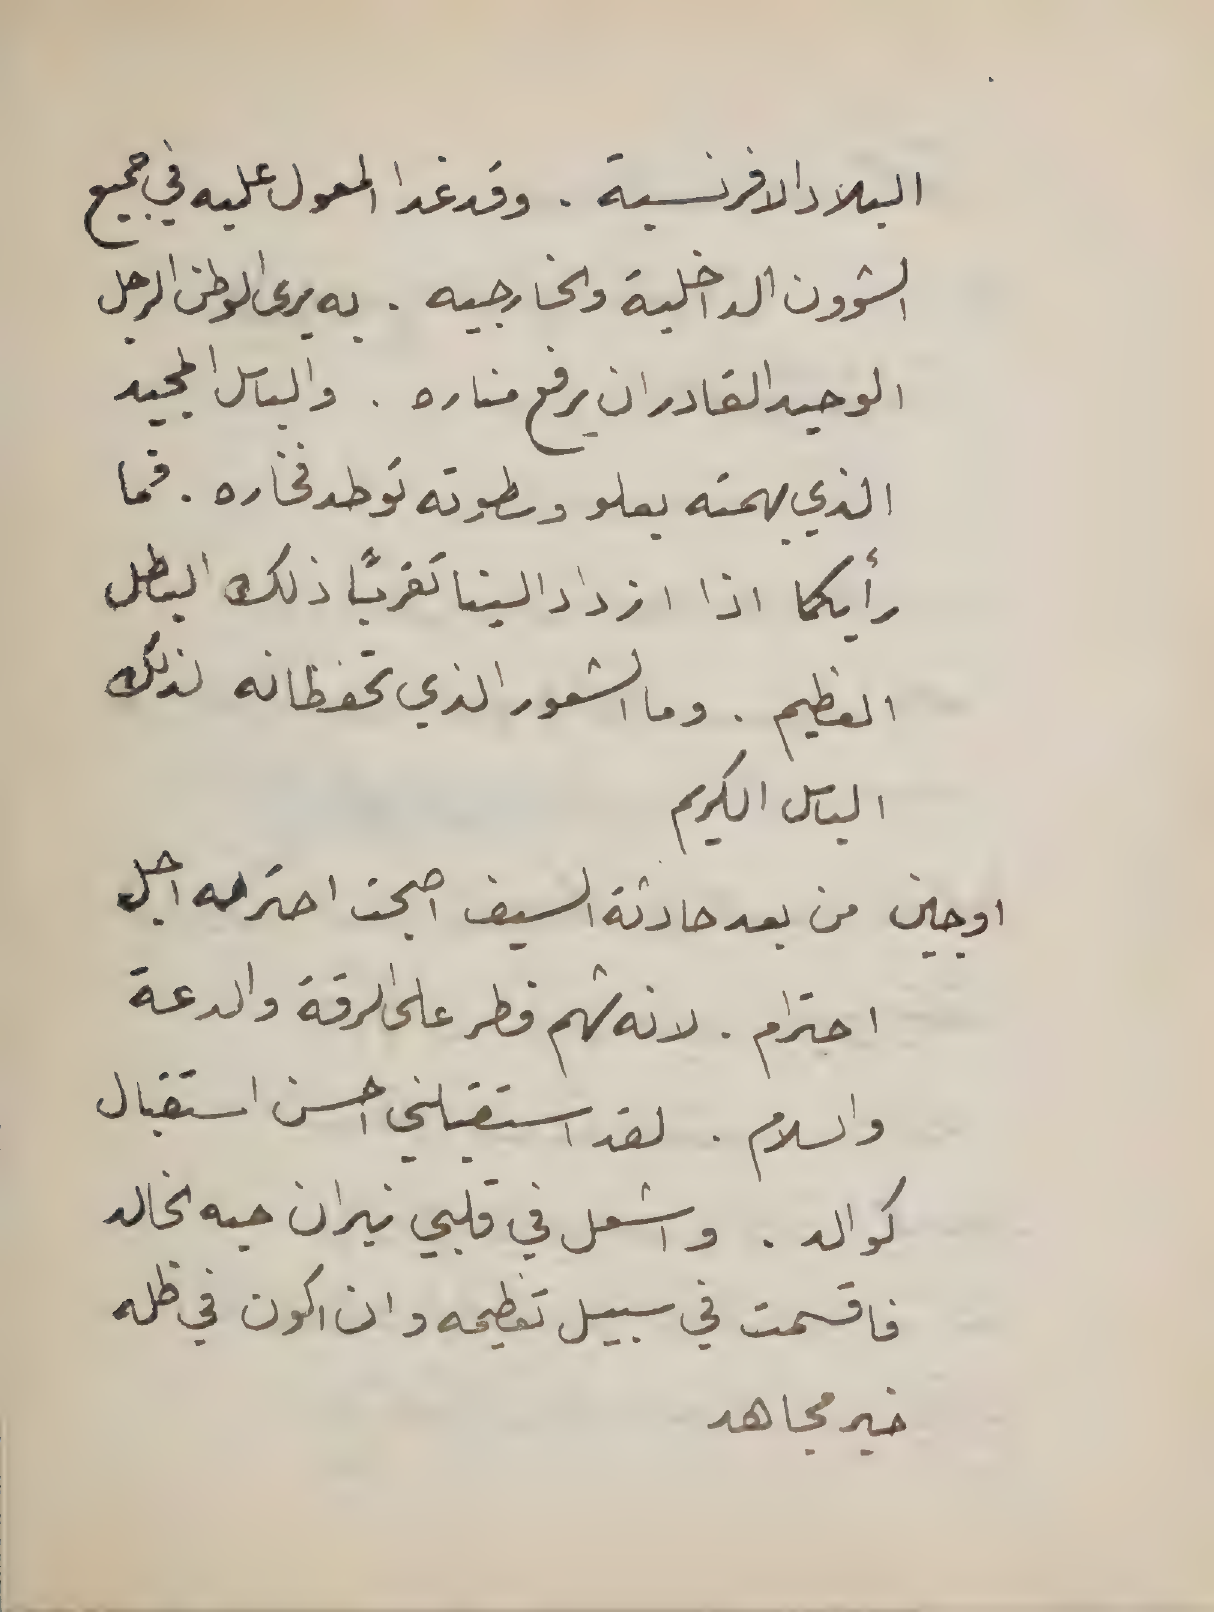 البلاد الافرنسية . وقد غدا المعول عليه في جميع
الشوون الداخلية والخارجيه . به يرى الوطن الرجل
الوحيد القادر ان يرفع مناره . والباسل المجيد
الذي بهمته يعلو وسطوته توطد فخاره . فما
رأيكما اذا ازداد الينا تقربًا ذلك البطل
العظيم . وما الشعور الذي تحفظانه لذلك
الباسل الكريم
اوجين من بعد حادثة السيف اصبحت احترمه اجل
احترام . لانه شهم فطر على الرقة والدعة
والسلام . لقد استقبلني احسن استقبال
كوالد . واشعل في قلبي نيران حبه الخالد
فاقسمت في سبيل تعظيمه وان اكون في ظله
خير مجاهد